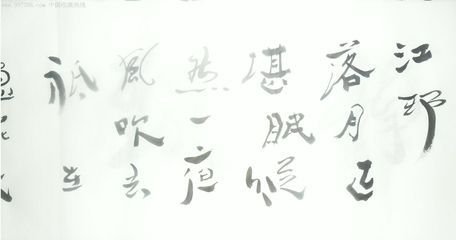 www.997788.com 中国收藏热线
江邨
落月正
堪眠縱
然一夜
風吹去
祇在